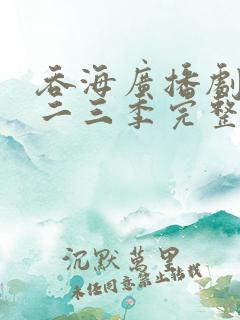 吞海廣播劇
二三季完整
沉默萬里
未任同意禁止轉載